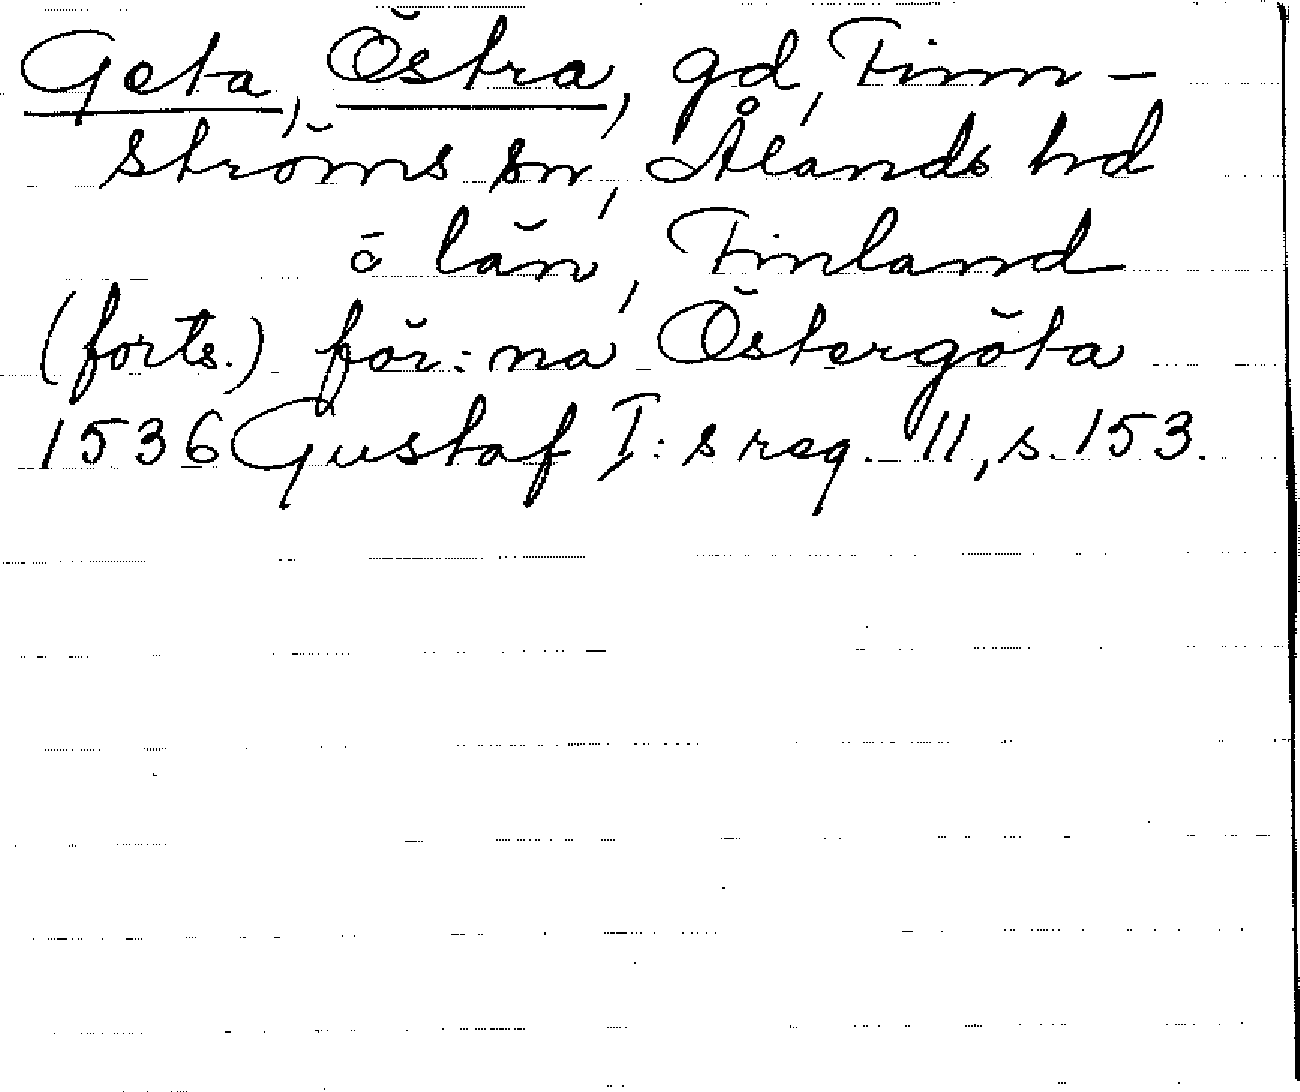 Geta, Östra, gd, Finn-
ströms sn, Ålands hd
o län, Finland
(forts.) för: na Östergöta
1536 Gustaf I: s reg. 11, s. 153.